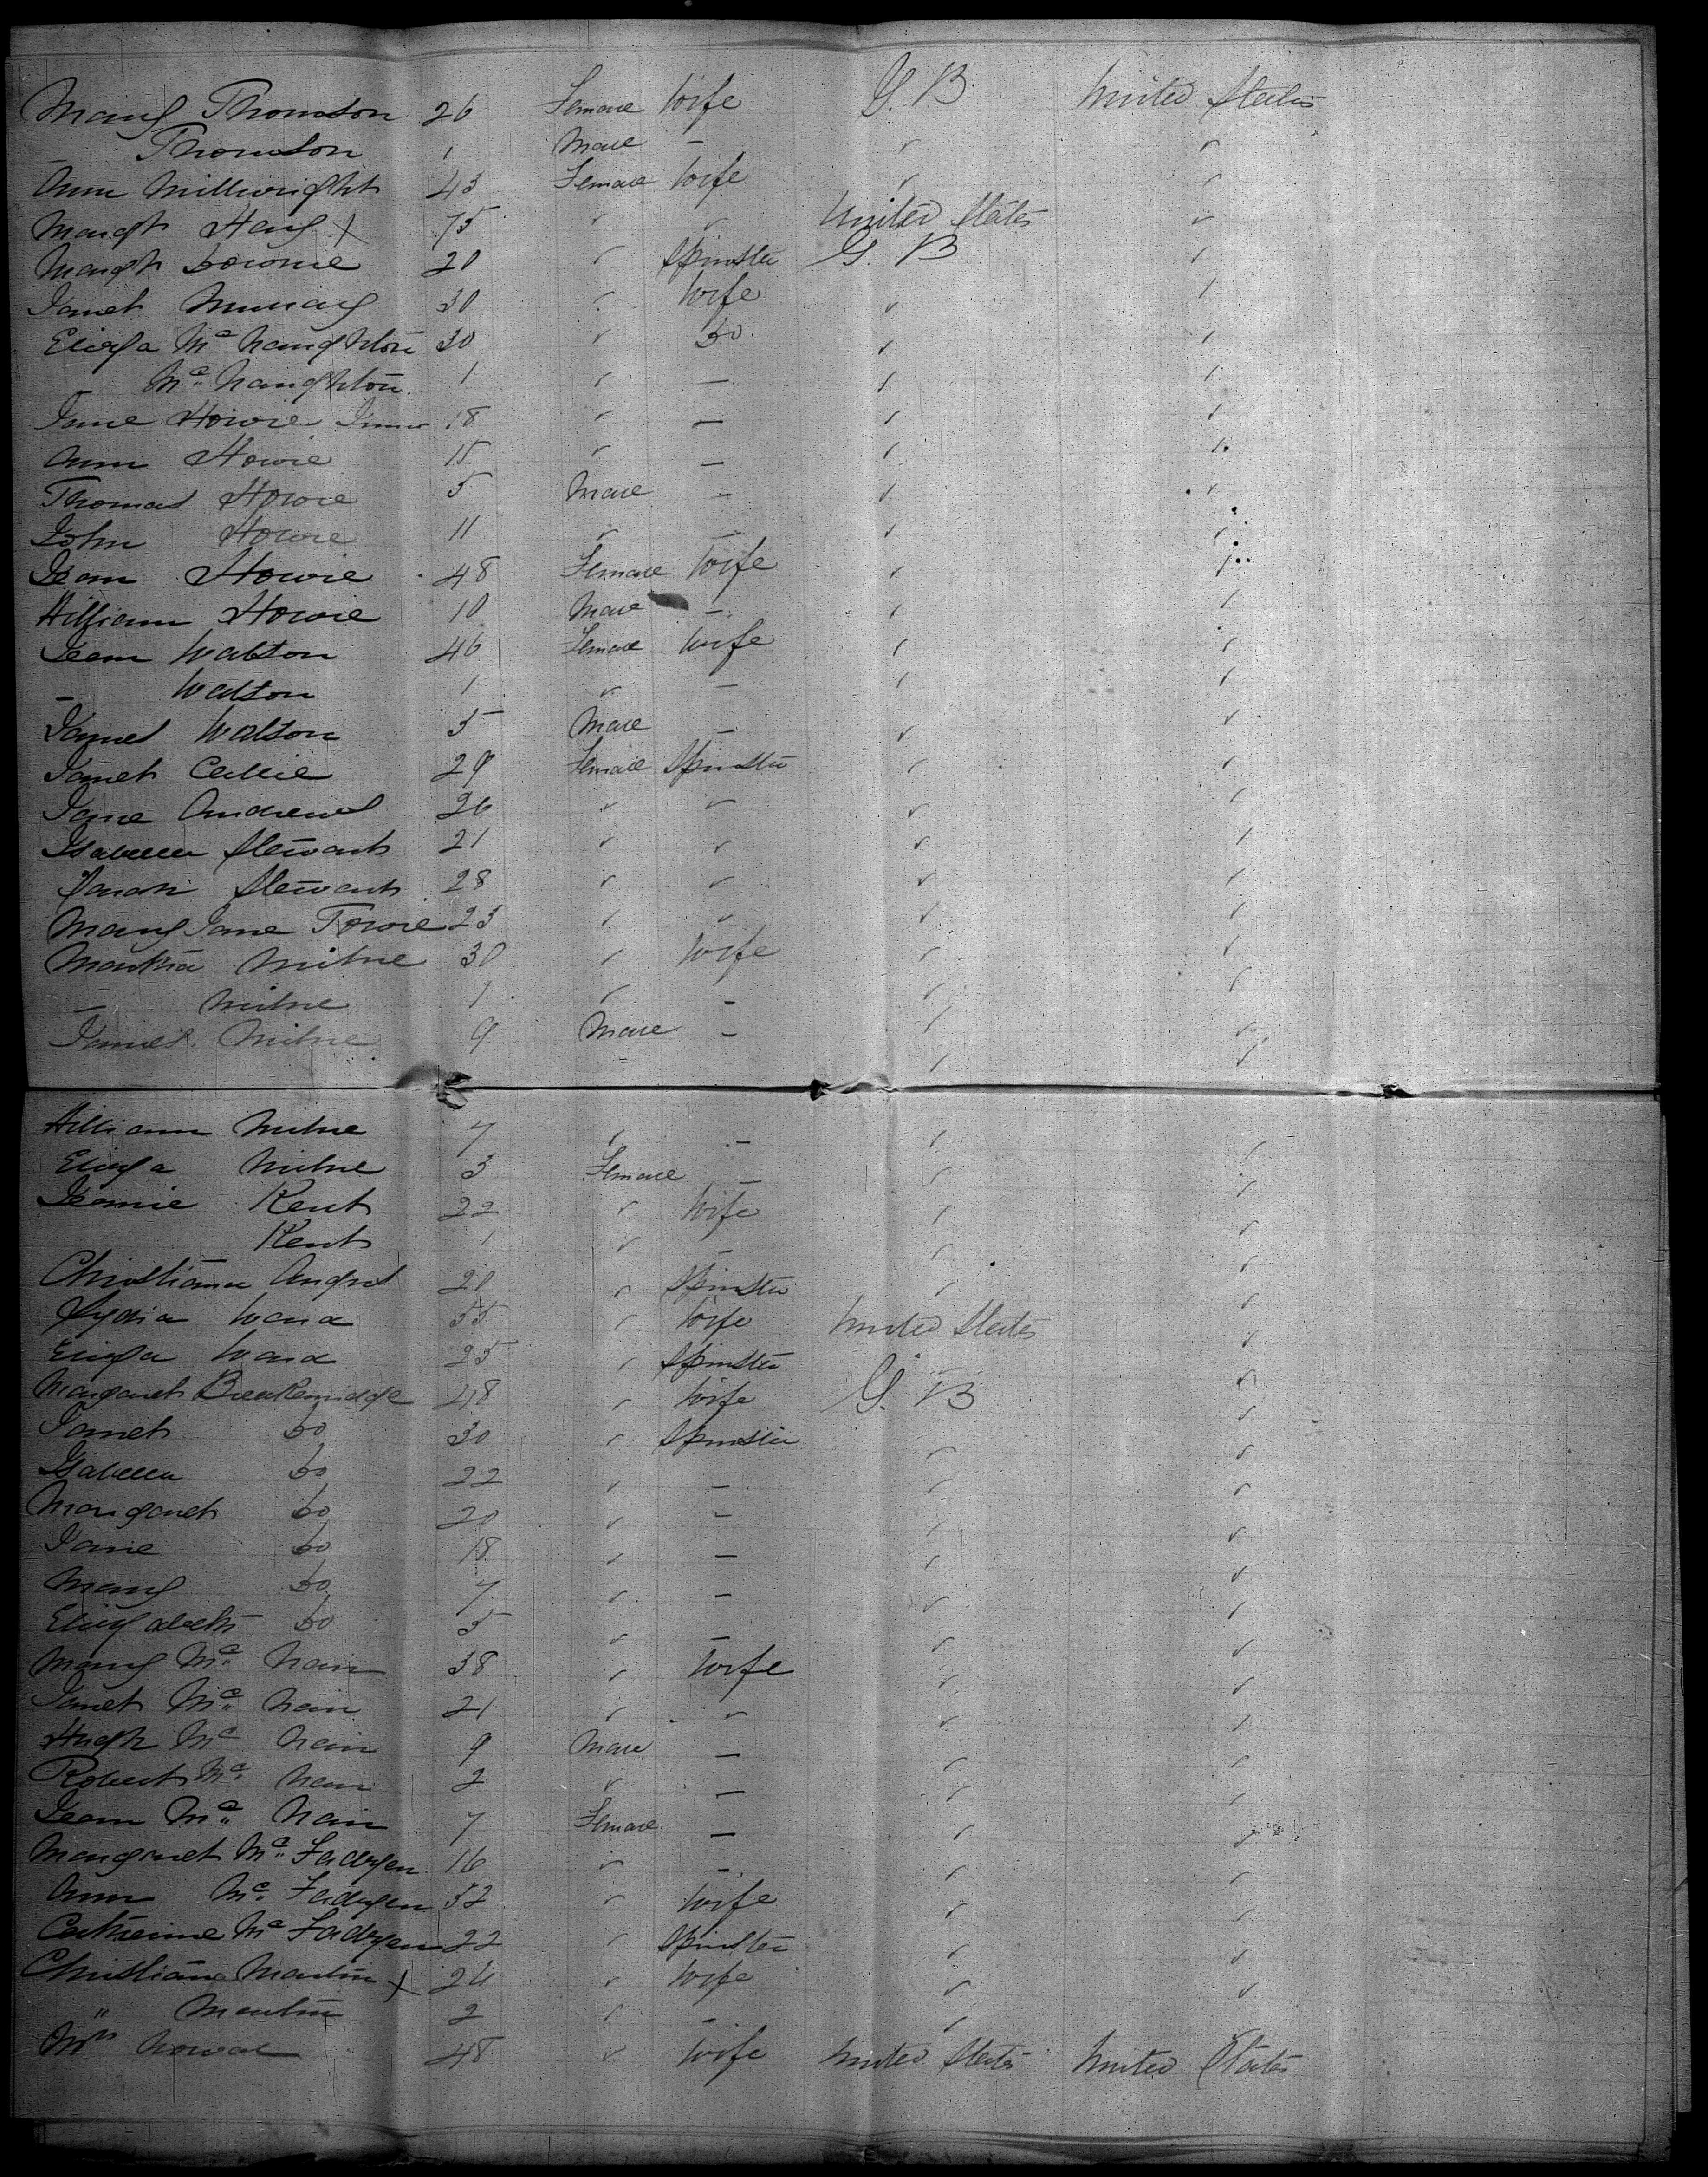 Mary Thomson 26 Female Wife G. B. United States
— Thomson 1 Male — ✓ ✓
Ann Millwright 43 Female Wife ✓ ✓
Margt Hay X 75 ✓ ✓ United States ✓
Margt Downie 20 ✓ Spinster G. B ✓
Janet Murray 30 ✓ Wife ✓ ✓
Eliza Mc Naughton 30 ✓ Do ✓ ✓
— Mc Naughton 1 ✓ — ✓ ✓
Jane Howie Junr 18 ✓ — ✓ ✓
Ann Howie 15 ✓ — ✓ ✓
Thomas Howie 5 Male — ✓ ✓
John Howie 11 ✓ — ✓ ✓
Jean Howie 48 Female Wife ✓ ✓
William Howie 10 Male — ✓ ✓
Jean Watson 46 Female Wife ✓ ✓
— Watson 1 ✓ — ✓ ✓
James Watson 5 Male — ✓ ✓
Janet 29 Female Spinster ✓ ✓
Jane Andrews 26 ✓ ✓ ✓ ✓
Isabella Stewart 21 ✓ ✓ ✓ ✓
Sarah Stewart 28 ✓ ✓ ✓ ✓
Mary Jane Towie 23 ✓ ✓ ✓ ✓
Martha Milne 30 ✓ Wife ✓ ✓
— Milne 1 ✓ — ✓ ✓
James Milne 9 Male — ✓ ✓
William Milne 7 ✓ — ✓ ✓
Eliza Milne 3 Female — ✓ ✓
Jeanie Kent 22 ✓ Wife ✓ ✓
Kent 1 ✓ — ✓ ✓
Christiana Angus 20 ✓ Spinster ✓ ✓
Lydia Ward 55 ✓ Wife United States ✓
Eliza Ward 25 ✓ Spinster ✓
Margaret Breakenridge 48 ✓ Wife G. B ✓
Janet Do 30 ✓ Spinster ✓ ✓
Isabella Do 22 ✓ — ✓ ✓
Margaret Do 20 ✓ — ✓ ✓
Jane Do 18 ✓ — ✓ ✓
Mary Do 7 ✓ — ✓ ✓
Elizabeth Do 5 ✓ — ✓ ✓
Mary Mc Nair 38 ✓ Wife ✓ ✓
Janet Mc Nair 21 ✓ ✓ ✓ ✓
Hugh Mc Nair 9 Male — ✓ ✓
Robert Mc Nair 2 ✓ — ✓ ✓
Jean Mc Nair 7 Female — ✓ ✓
Margaret Mc Fadyen 16 ✓ — ✓ ✓
Ann Mc Fadyen 52 ✓ Wife ✓ ✓
Catherine Mc Fadyen 22 ✓ Spinster ✓ ✓
Christiana Martin X 24 ✓ Wife ✓ ✓
" Martin 2 ✓ — ✓ ✓
Mrs 48 ✓ Wife United States United States